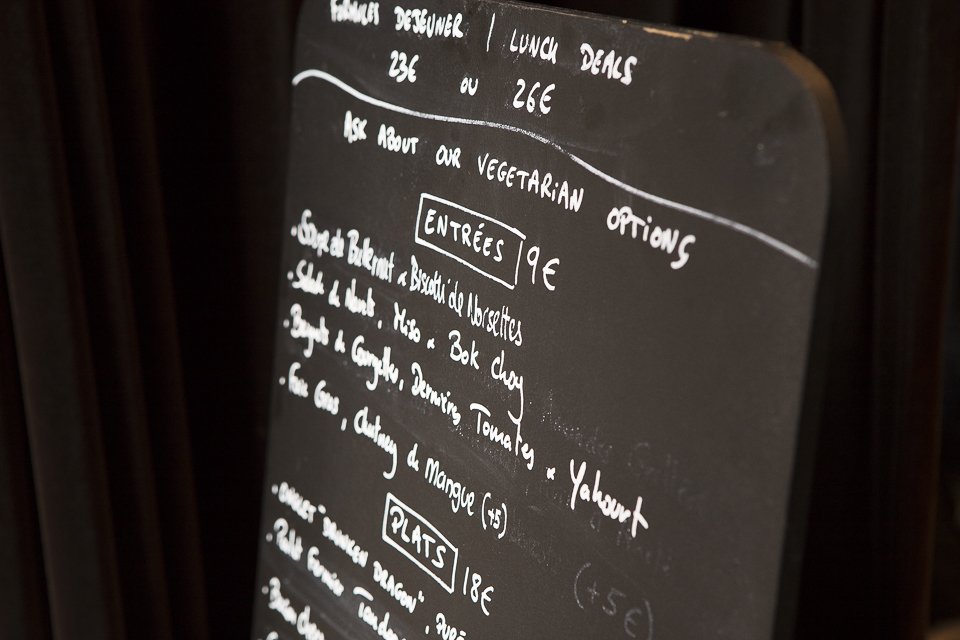 FORMULES DEJEUNER | LUNCH DEALS
23€ OU 26€
ASK ABOUT OUR VEGETARIAN OPTIONS
ENTRÉES 9€
Soupe de Buternut & Biscotti de Noisettes
Salade de Navets, Miso & Bok choy
Beignets de Courgettes, Dernières Tomates & Yahourt
Foie Gras, Chutney de Mangue (+5)
PLATS 18€
"DRUNKEN DRAGON",
Poulet Fermier
(+5€)